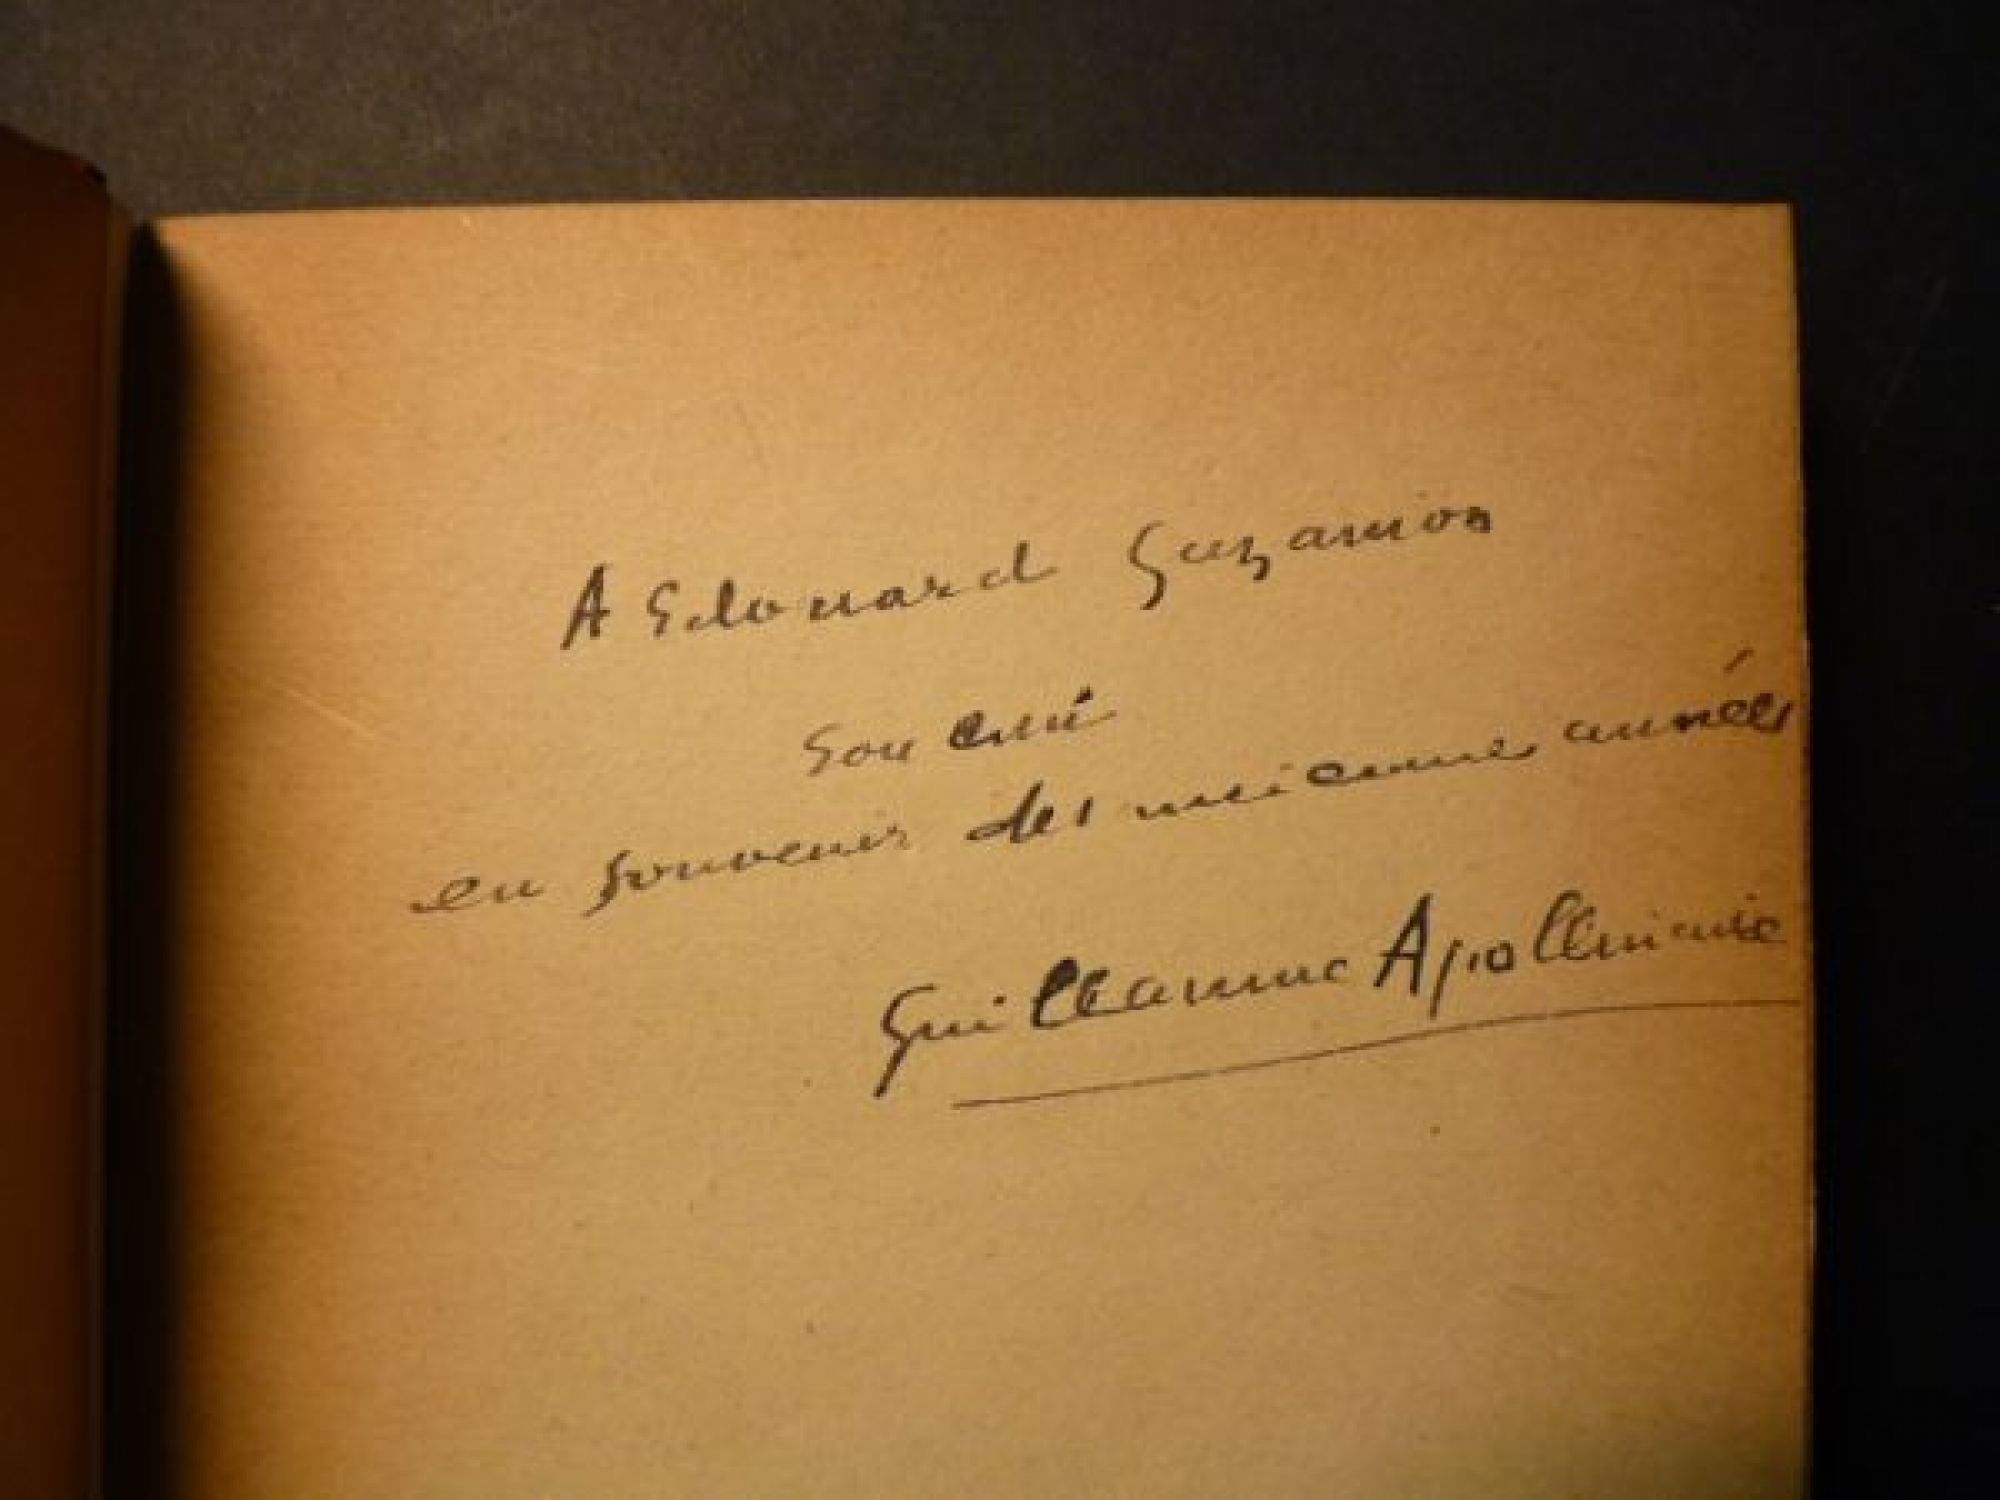 A Edouard Guzamon
son ami
en souvenir des années
Guillaume Apollinaire